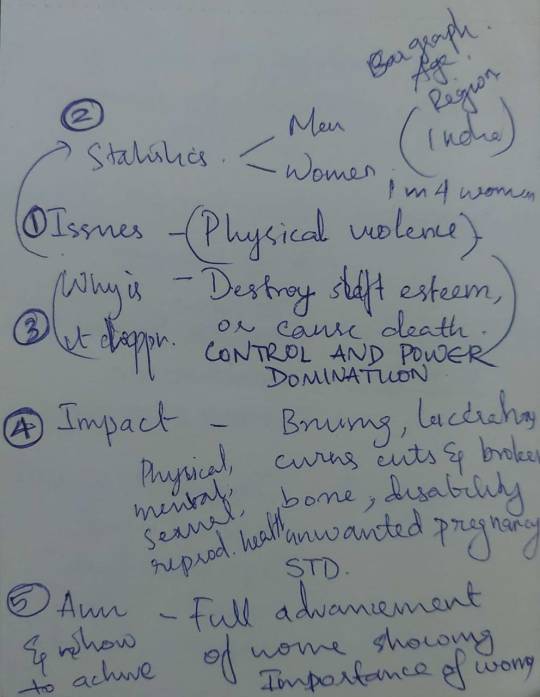 Bargraph.
Age.
Region
(India)
② Statistics. < Men
Women. 1 in 4 women
① Issues - (Physical violence)
③ (Why is - Destroy self esteem,
it happn. or cause death.)
CONTROL AND POWER
DOMINATION
④ Impact - Bruises,
Physical, cuts & broken
mental, bone, disability
sexual, unwanted pregnancy
reprod. health STD.
⑤ Aim - Full advancement
& how of showing
to Importance of